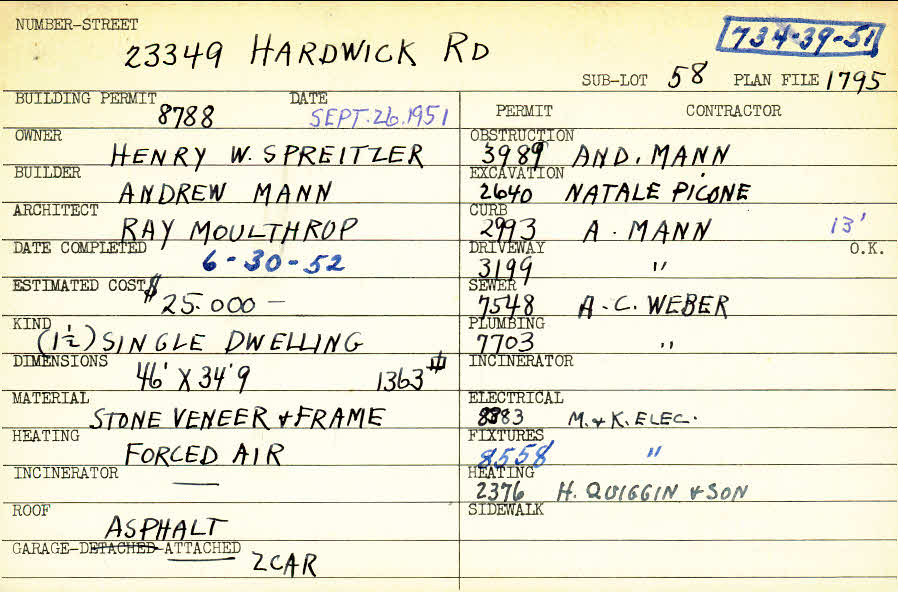 NUMBER-STREET
23349 HARDWICK RD
734-39-51
SUB-LOT 58 PLAN FILE 1795
BUILDING PERMIT DATE
8788 SEPT. 26. 1951
OWNER
HENRY W. SPREITZER
BUILDER
ANDREW MANN
ARCHITECT
RAY MOULTHROP
DATE COMPLETED
6-30-52
ESTIMATED COST $
25.000 —
KIND
(1½) SINGLE DWELLING
DIMENSIONS
46' X 34'9 1363#
MATERIAL
STONE VENEER & FRAME
HEATING
FORCED AIR
INCINERATOR
—
ROOF
ASPHALT
GARAGE-DETACHED-ATTACHED
2 CAR
PERMIT CONTRACTOR
OBSTRUCTION
3989 AND. MANN
EXCAVATION
2640 NATALE PICONE
CURB
2993 A. MANN 13'
DRIVEWAY O.K.
3199 "
SEWER
7548 A.C. WEBER
PLUMBING
7703 "
INCINERATOR
ELECTRICAL
8883 M. & K. ELEC.
FIXTURES
8558 "
HEATING
2376 H. QUIGGIN & SON
SIDEWALK